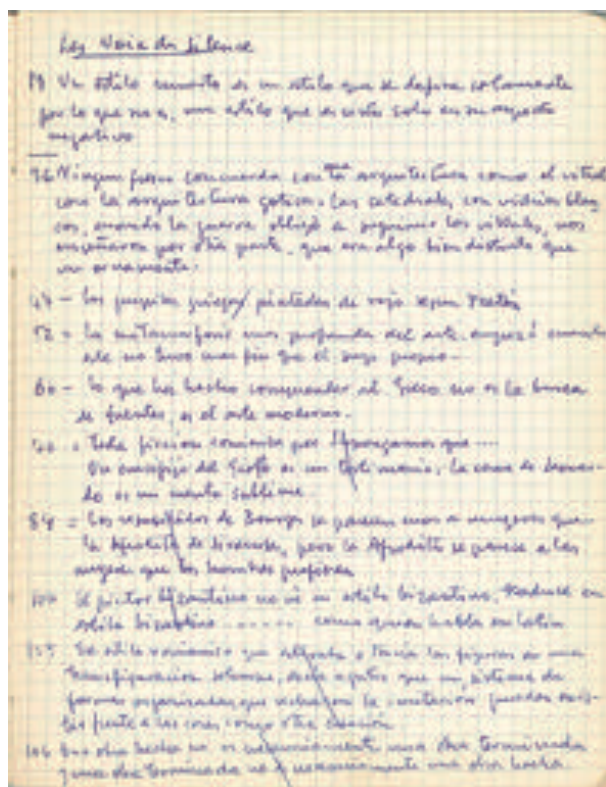 Les Voix du Silence
19 Un estilo muerto es un estilo que se define solamente
por lo que no es, un estilo que es visto solo en su aspecto
negativo
36 Ninguna forma concuerda con la arquitectura como el vitral
con la arquitectura gótica. Las catedrales con vidrios blan
cos, cuando la guerra obligó a los vitrales, nos
enseñaron por otra parte, que era algo bien distinto que
un ornamento.
pintados de rojo según Platón
52 - la metamorfosis mas profunda del arte empezó cuando
este no tuvo mas fin que el suyo propio -
60 - lo que ha hecho comprender al Greco no es la busca
de fuentes, es el arte moderno.
Toda ficción comienza por Supongamos que ....
Un crucifijo de es un testimonio. La cena de Leonar-
do es un cuento sublime
84 - Los resucitados de Bourges se parecen mas a mujeres que
la Afrodita de, pero la Afrodita se parece a las
mujeres que los hombres prefieren
100 El pintor bizantino no ve en estilo bizantino, traduce en
estilo bizantino ...... como quien habla en latín
El estilo románico que las figuras de una
transfiguración solemne, que un sistema de
formas organizadas que la imitación puedan exis-
tir frente a las cosas como otra creación
106 Una obra hecha no es necesariamente una obra terminada
y una obra terminada no es necesariamente una obra hecha